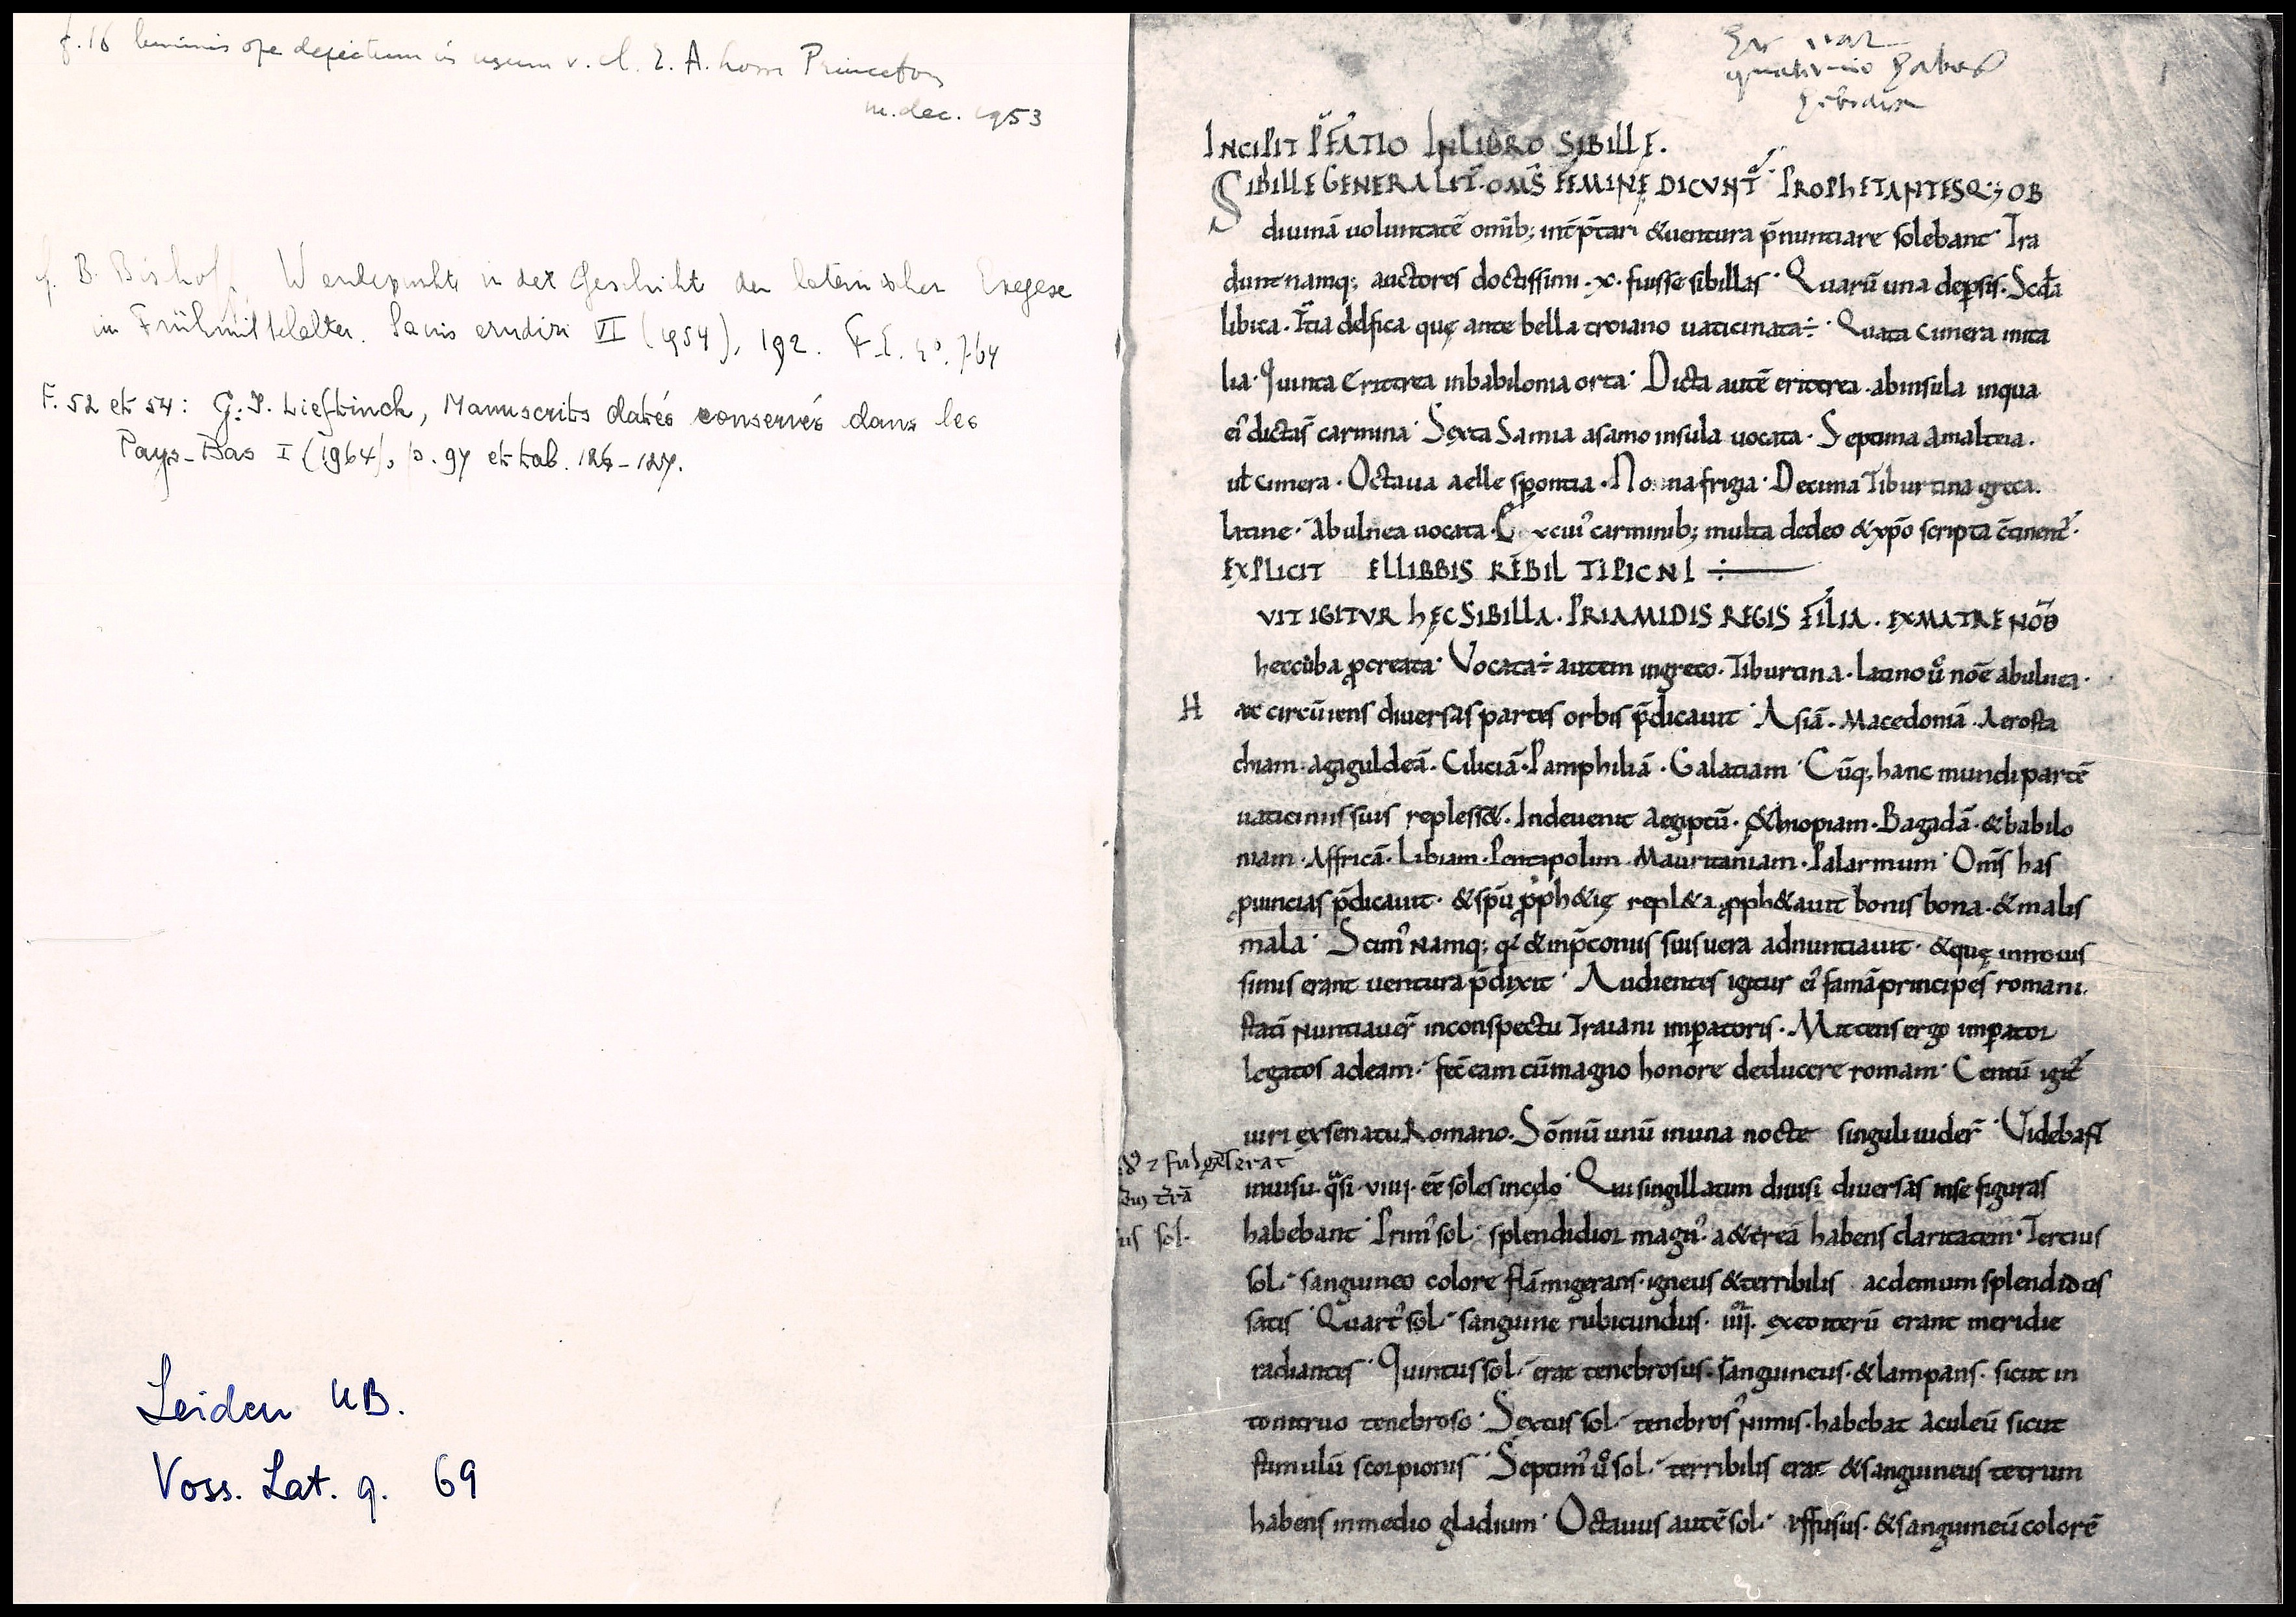 f. 16 luminis ope depictum in usum v. cl. E. A. Lowe Princeton
m. dec. 1953
cf. B. Bishoff, Wendepunkte in der Geschicht der lateinischen Exegese
im Frühmittelalter. Sacris erudiri VI (1954), 192.
F. 52 et 54: G. I. Lieftinck, Manuscrits datés conservés dans les
Pays-Bas I (1964), p. 97 et tab. 126-127.
Leiden UB.
Voss. Lat. q. 69
quaternio
INCIPIT P̄FATIO IN LIBRO SIBILLE.
SIBILLE GENERALIT̄ OM̄S FEMINĘ DICVNT̄ PROPHETANTES Q; OB
diuinā uoluntatē omīb; int̄p̄tari & uentura p̄nuntiare solebant Tra
dunt namq; auctores doctissimi .x. fuisse sibillas Quarū una de persis. Scd̄a
libica. T̄tia delfica quę ante bella troiano uaticinata ÷ Quata cimera inita
lia Quinta Erittrea in babilonia orta Dicta autē eritrea ab insula in qua
ei᾽ dictas̄ carmina Sexta Samia a samo insula uocata. Septima amalteia.
ul̄ cimera. Octaua aellespontia. Nona frigia Decima Tiburtina greca.
latine. abulnea uocata. Cui᾽ carminib; multa de deo & xp̄o scripta c̄tinent᾽.
EXPLICIT ELLIBBIS REBIL TIPICNI ÷
VIT IGITVR hĘC SIBILLA. PRIAMIDIS REGIS FILIA. EX MATRE NOĒ
heccuba pcreata Vocata ÷ autem in greco. Tiburtina. Latino u᾽o noē abulnea.
H aec circūiens diuersas partes orbis p̄dicauit Asiā. Macedoniā. Aerosta
chiam. agaguldeā. Ciliciā. Pamphiliā. Galatiam Cūq; hanc mundi partē
uaticiniis suis repless&. Inde uenit aegiptū. &hiopiam. Bagadā. & babilo
niam. Affricā. Libiam. Pentapolim. Mauritaniam. Palarmum Om̄s has
puincias p̄dicauit. & sp̄u pph&ię repl&a. pph&auit bonis bona. & malis
mala Scim᾽ namq; qd & in p̄coniis suis uera adnuntiauit. & quę in nouis
simis erant uentura p̄dixit Audientes igitur ei᾽ famā principes romani.
statī nuntiauer̄ in conspectu Traiani imperatoris. Mittens ergo imperator
legatos ad eam. fec̄ eam cū magno honore deducere romam Centū igit᾽
uiri ex senatu Romano. Sōniū unū in una nocte singuli uider̄ Videbant
in uisu. qᵃsi. viiij. eē soles in cęlo Qui singillatim diuisi diuersas in se figuras
habebant Prim᾽ sol splendidior magn᾽ a&ereā habens claritatem. Tertius
sol sanguineo colore flāmigerans. igneus & terribilis ac demum splendidus
satis Quart᾽ sol sanguine rubicundus. iiij. ex eo iterū erant meridie
radiantes Quintus sol erat tenebrosus. sanguineus. & lampans. sicut in
tonitruo tenebroso Sextus sol tenebros᾽ nimis. habebat aculeū sicut
stimulū scorpionis Septim᾽ u᾽o sol terribilis erat & sanguineus tetrum
habens in medio gladium Octauus autē sol effusus. & sanguineū colorē
fulgens erat
us sol.